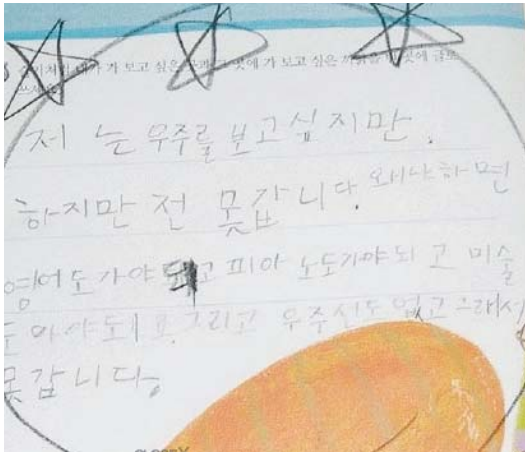 내가 가 보고 싶은 곳과 그 곳에 가 보고 싶은 까닭을 글로
쓰세요
저 는 우주를 보고십지만.
하지만 전 못갑니다. 왜냐하면
영어도가야되고 피아 노도가야되 고 미술
도 가야되고 그리고 우주선도 없고 그래서
못갑니다.